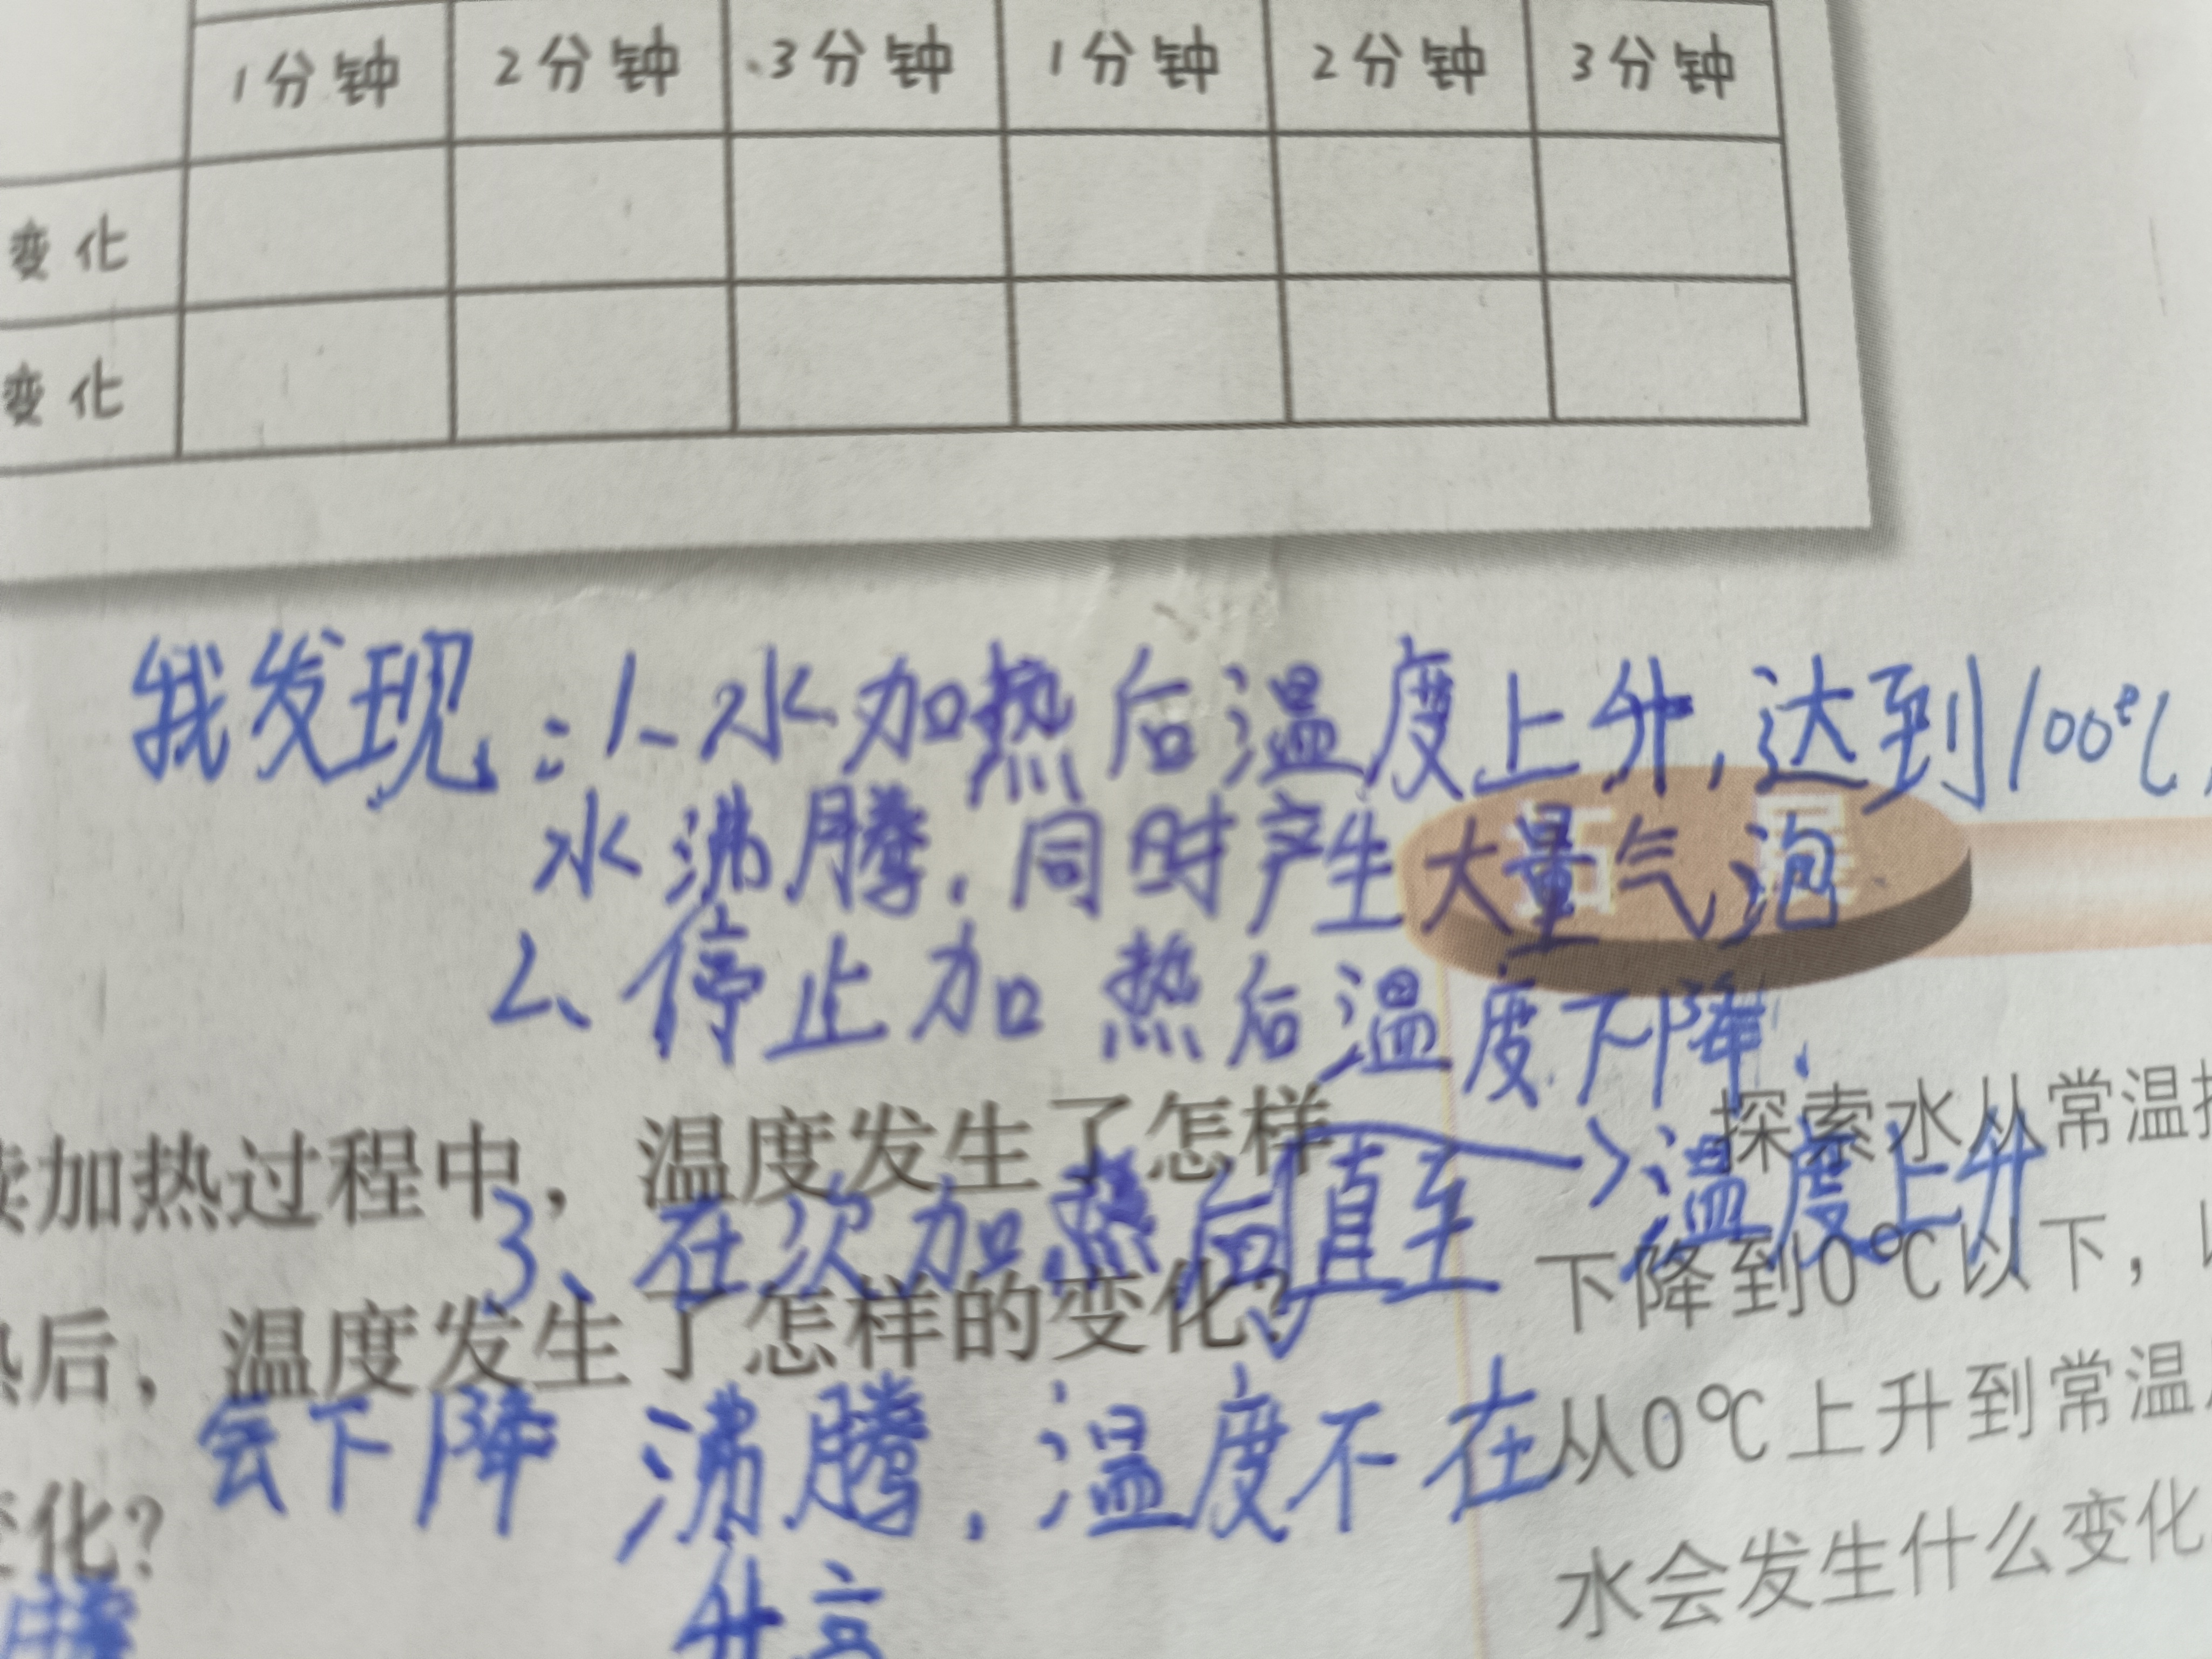 1分钟 2分钟 3分钟 1分钟 2分钟 3分钟
变化
变化
我发现：1、水加热后温度上升，达到100℃，
水沸腾，同时产生大量气泡
2、停止加热后温度下降.
续加热过程中，温度发生了怎样
3、在次加热后直至
→温度上升
热后，温度发生了怎样的变化？
会下降
沸腾，温度不在
变化？
升高
拓展
探索水从常温
下降到0℃以下，
从0℃上升到常温
水会发生什么变化